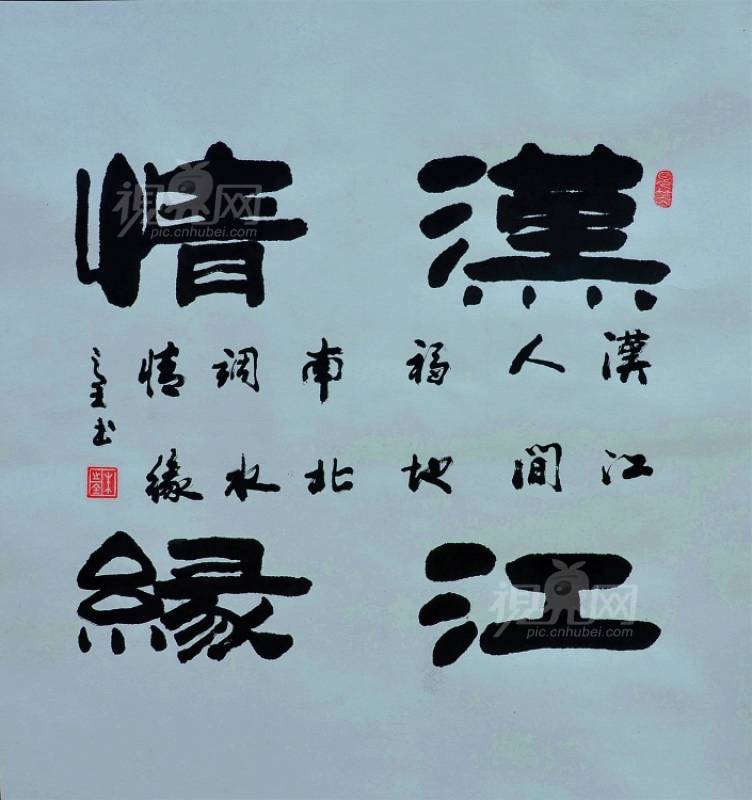 漢江
情緣
漢江
人間
福地
南北
調水
情緣
pic.cnhubei.com
pic.cnhubei.com